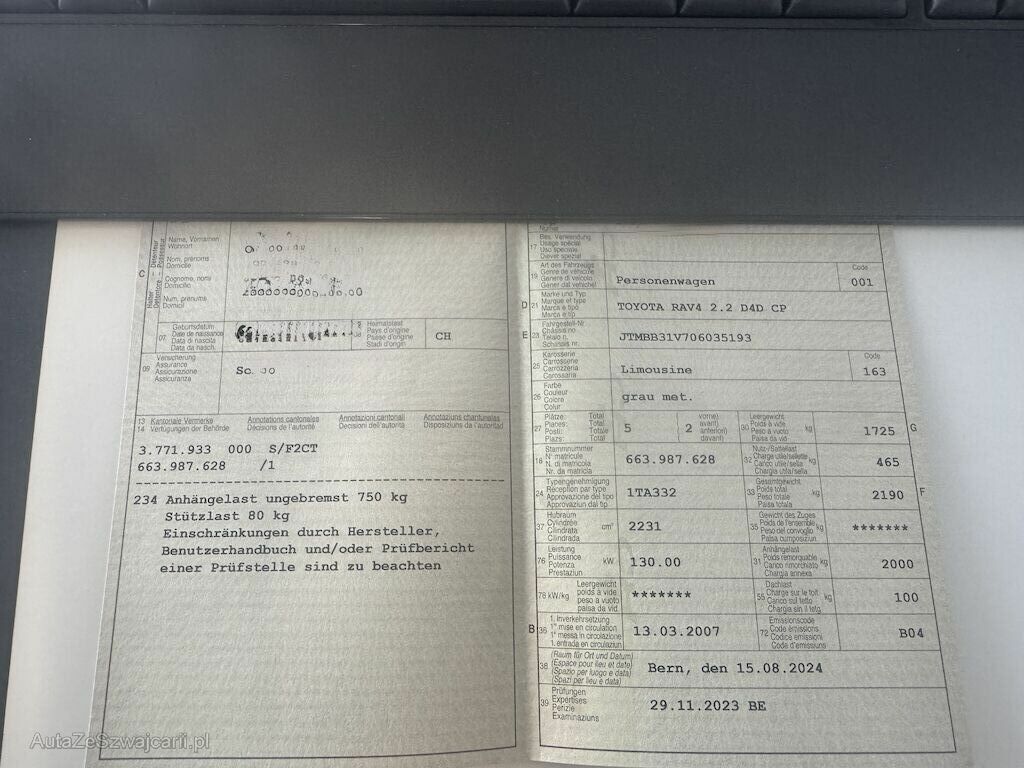 C
Halter
Détenteur
Detentore – Possessur
Name, Vornamen
Wohnort
Nom, prénoms
Domicile
Cognome, nomi
Domicilio
Num, prenums
Domicil
07
Geburtsdatum
Date de naissance
Data di nascita
Data da nasch.
08
Heimatstaat
Pays d'origine
Paese d'origine
Stadi d'origin
CH
09
Versicherung
Assurance
Assicurazione
Assicuranza
13 Kantonale Vermerke Annotations cantonales Annotazioni cantonali Annotaziuns chantunalas
14 Verfügungen der Behörde Décisions de l'autorité Decisioni dell'autorità Disposiziuns da l'autoritad
3.771.933 000 S/F2CT
663.987.628 /1
234 Anhängelast ungebremst 750 kg
Stützlast 80 kg
Einschränkungen durch Hersteller,
Benutzerhandbuch und/oder Prüfbericht
einer Prüfstelle sind zu beachten
17
Bes. Verwendung
Usage spécial
Uso speciale
Diever spezial
19
Art des Fahrzeugs
Genre de véhicule
Genere di veicolo
Gener dal vehichel
Personenwagen
Code
001
D 21
Marke und Typ
Marque et type
Marca e tipo
Marca e tip
TOYOTA RAV4 2.2 D4D CP
E 23
Fahrgestell-Nr.
Châssis no
Telaio n.
Schassis nr.
JTMBB31V706035193
25
Karosserie
Carrosserie
Carrozzeria
Carossaria
Limousine
Code
163
26
Farbe
Couleur
Colore
Colur
grau met.
27
Plätze: Total
Places: Total
Posti: Totale
Plazs: Total
5
vorne)
avant)
anteriori)
davant)
2
30
Leergewicht
Poids à vide
Peso a vuoto
Paisa da vid
kg
1725
G
18
Stammnummer
N° matricule
N. di matricola
Nr. da matricla
663.987.628
32
Nutz-/Sattellast
Charge utile/sellette
Carico utile/sella
Chargia utila/sella
kg
465
24
Typengenehmigung
Réception par type
Approvazione del tipo
Approvaziun dal tip
1TA332
33
Gesamtgewicht
Poids total
Peso totale
Paisa totala
kg
2190
F
37
Hubraum
Cylindrée
Cilindrata
Cilindrada
cm³
2231
35
Gewicht des Zuges
Poids de l'ensemble
Peso del convoglio
Paisa cumposiziun
kg
*******
76
Leistung
Puissance
Potenza
Prestaziun
kW
130.00
31
Anhängelast
Poids remorquable
Carico rimorchiato
Chargia annexa
kg
2000
78 kW/kg
Leergewicht
poids à vide
peso a vuoto
paisa da vid
*******
55
Dachlast
Charge sur le toit
Carico sul tetto
Chargia sin il tetg
kg
100
B 36
1. Inverkehrsetzung
1re mise en circulation
1a messa in circolazione
1. entrada en circulaziun
13.03.2007
72
Emissionscode
Code émissions
Codice emissioni
Code d'emissiuns
B04
38
(Raum für Ort und Datum)
(Espace pour lieu et date)
(Spazio per luogo e data)
(Spazi per lieu e data)
Bern, den 15.08.2024
39
Prüfungen
Expertises
Perizie
Examinaziuns
29.11.2023 BE
AutaZeSzwajcarii.pl